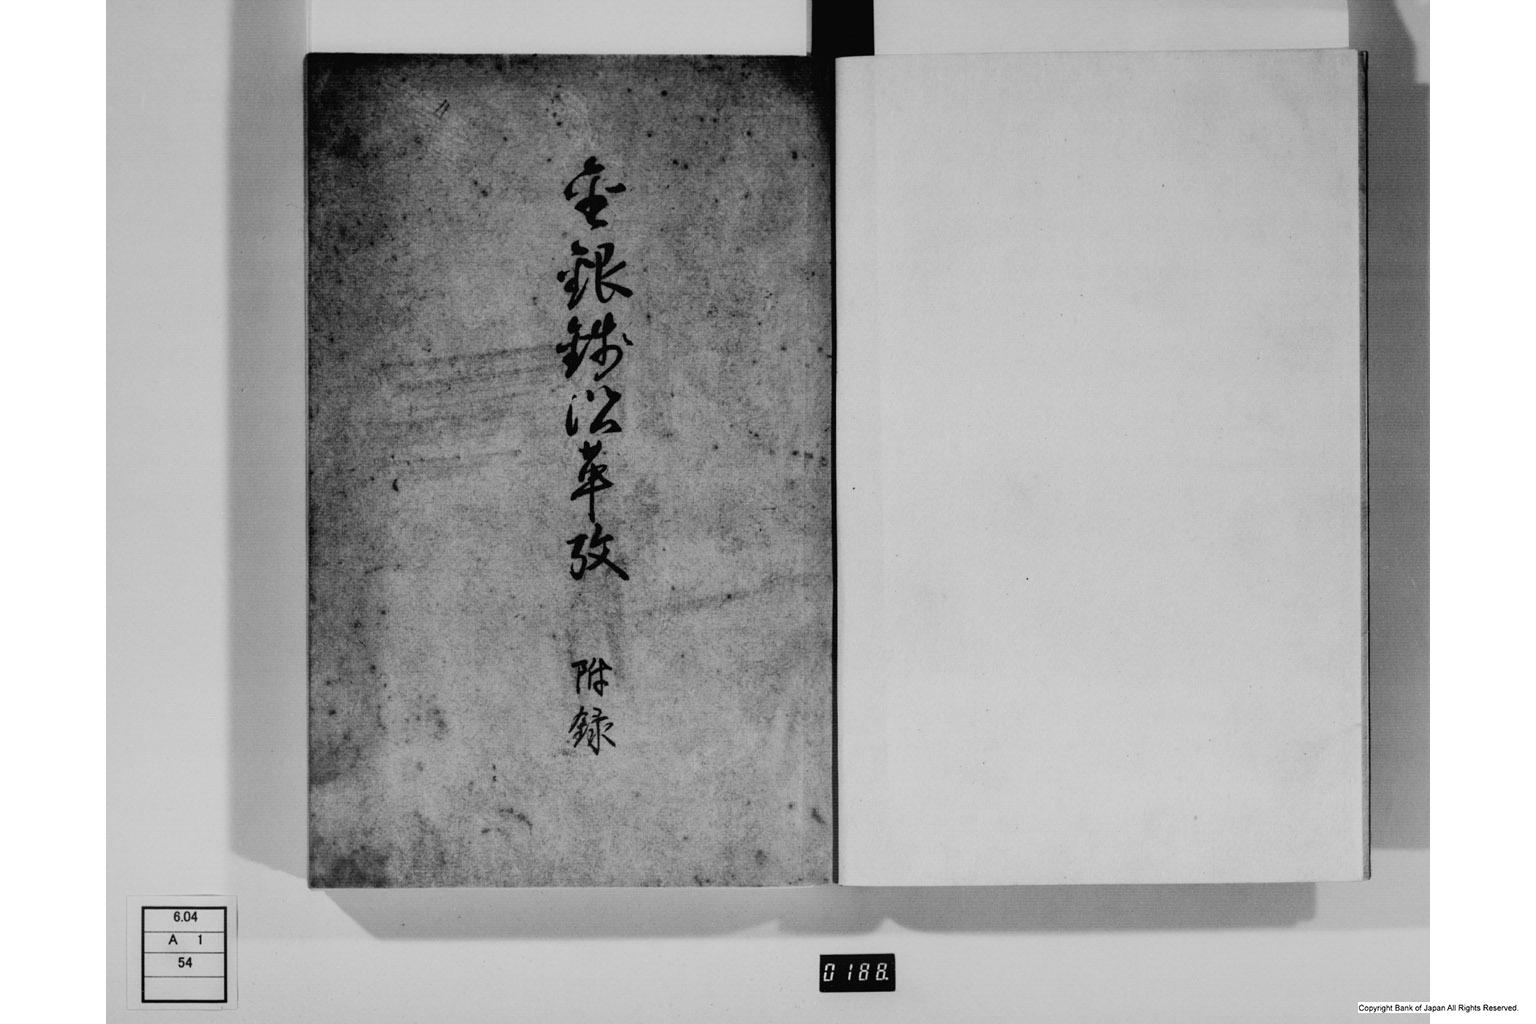 金銀銭沿革攷
附録
6.04
A 1
54
0188.
Copyright Bank of Japan All Rights Reserved.